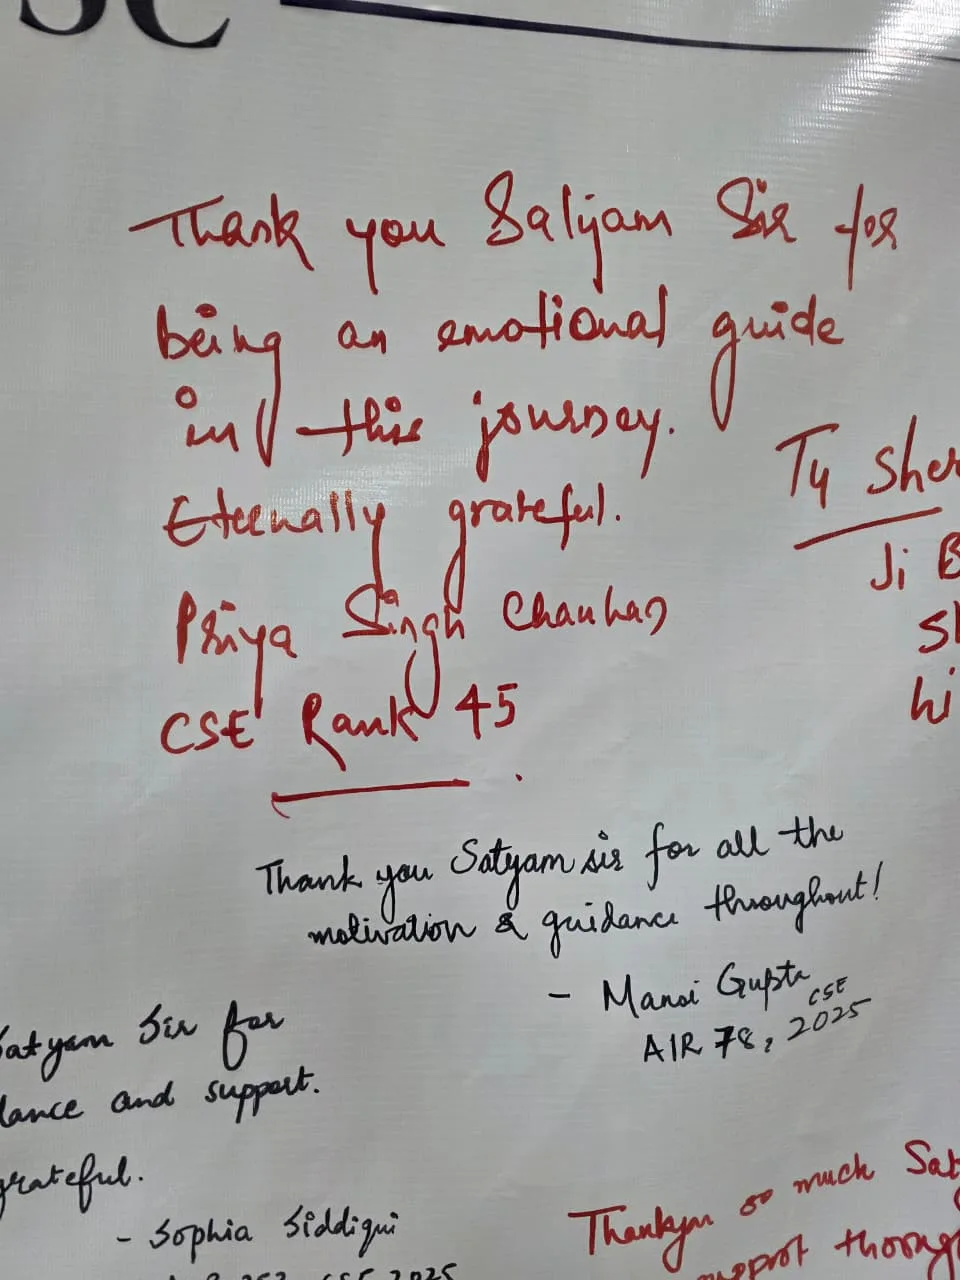 SC
Thank you Satyam Sir for
being an emotional guide
in this journey.
Eternally grateful.
Priya Singh Chauhan
CSE Rank 45
Ty Sher
Ji B
Sh
hi
Thank you Satyam sir for all the
motivation & guidance throughout!
- Mansi Gupta
CSE
AIR 78, 2025
Satyam Sir for
dance and support.
grateful.
- Sophia Siddiqui
CSE 2025
Thankyou so much Sat
support throug